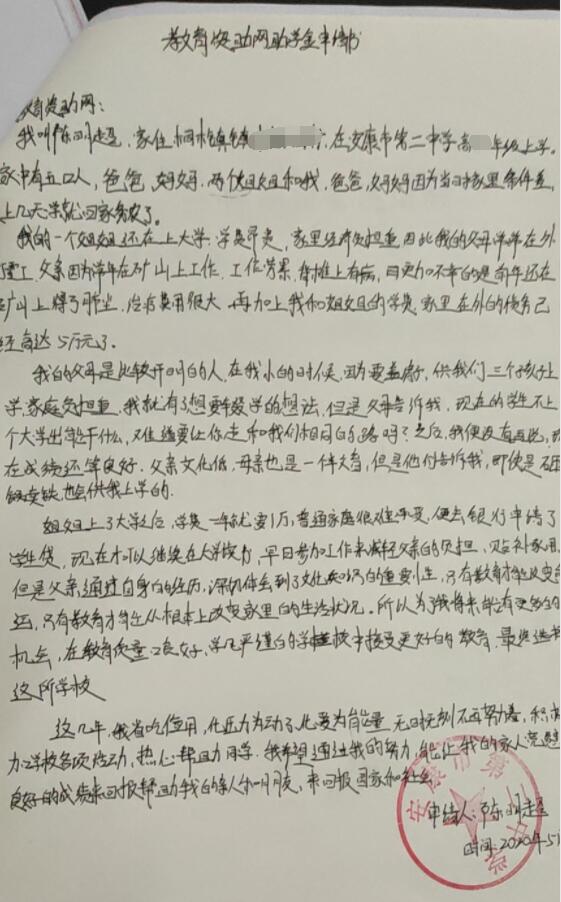 教育资助网助学金申请书
教育资助网：
我叫陈 超，家住桐木镇 在安康市第二中学高 年级上学。
家中有五口人，爸爸，妈妈，两个姐姐和我，爸爸，妈妈因为当时家里条件差，
上几天学就回家务农了。
我的一个姐姐还在上大学，学费昂贵，家里经济负担重，因此我的父母常年在外
打工，父亲因为常年在矿山上工作，工作劳累，脊椎上有病，而更加不幸的是前年还在
矿山上得了肺尘，治疗费用很大，再加上我和姐姐的学费，家里在外的债务已
经高达5万元了。
我的父母是比较开明的人，在我小的时候，因为要盖房，供我们三个孩子上
学，家庭负担重，我就有了想要辍学的想法，但是父母告诉我，现在的学生不上
个大学出能干什么，难道要让你走和我们相同的路吗？之后，我便没有再说，现
在成绩还算良好，父亲文化低，母亲也是一个文盲，但是他们告诉我，即使是砸
锅卖铁，也会供我上学的。
姐姐上了大学之后，学费一年就要1万，普通家庭很难承受，便去银行申请了
学生贷，现在才可以继续在大学读书，早日参加工作来减轻父亲的负担，贴补家用
但是父亲，通过自身的经历，深刻体会到了文化知识的重要性，只有教育才能改变命
运，只有教育才能从根本上改变家里的生活状况。所以为了我将来能有更多的
机会，在教育质量良好，学风严谨的学校中接受更好的教育，最终选择
这所学校
这几年，我省吃俭用，化压力为动力，化爱为能量，无时无刻不再努力着，积极
加学校各项活动，热心帮助同学。我希望通过我的努力，能让我的家人
良好的成绩来回报帮助我的亲人和朋友，来回报国家和社会。
申请人：陈 超
时间：2020年5
安康市第二中学